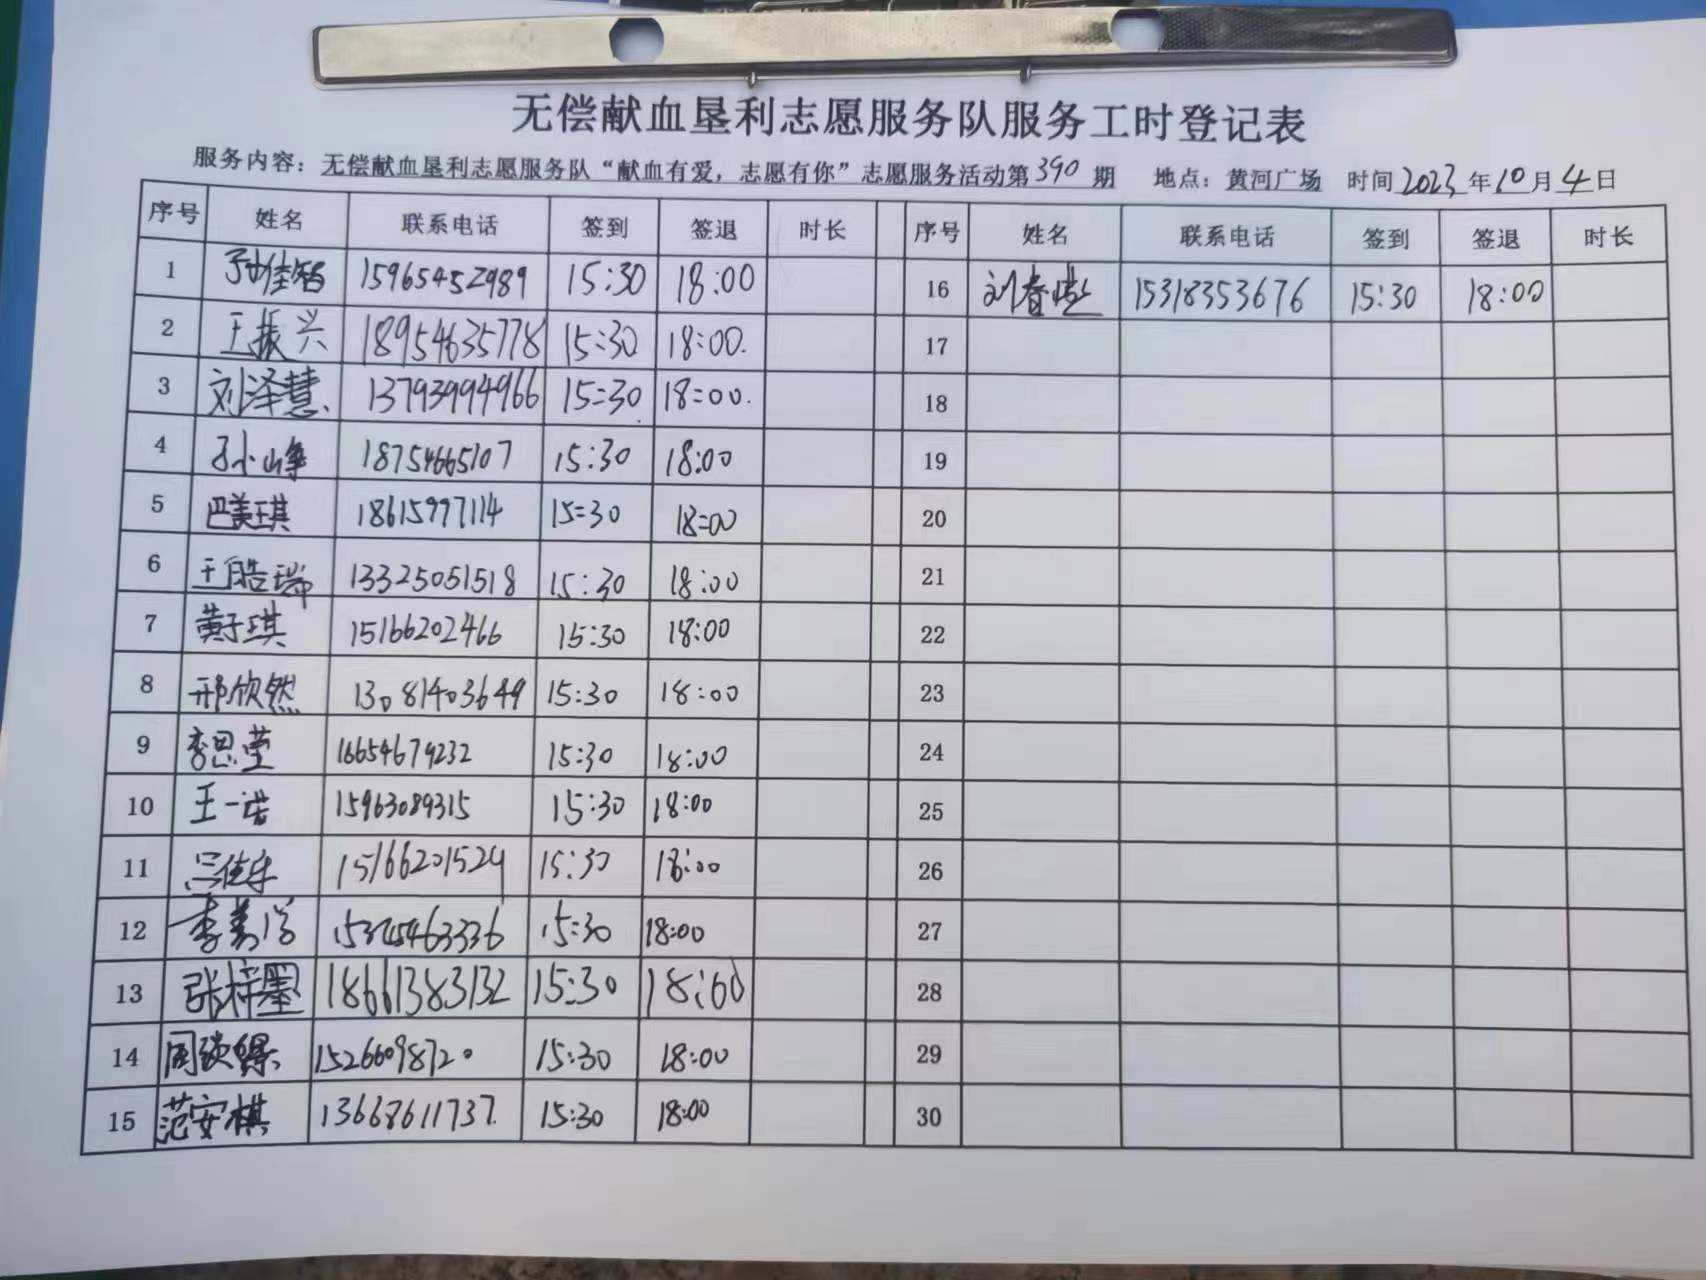 无偿献血垦利志愿服务队服务工时登记表
服务内容：无偿献血垦利志愿服务队“献血有爱，志愿有你”志愿服务活动第390期 地点：黄河广场 时间2023年10月4日
序号 姓名 联系电话 签到 签退 时长 序号 姓名 联系电话 签到 签退 时长
1 孙佳智 15965452989 15:30 18:00 16 刘春 15318353676 15:30 18:00
2 王振兴 18954635778 15:30 18:00. 17
3 刘泽慧 13793994966 15:30 18:00. 18
4 孙小峰 18754665107 15:30 18:00 19
5 巴美琪 18615997114 15:30 18:00 20
6 王皓瑞 13325051518 15:30 18:00 21
7 黄于琪 15166202466 15:30 18:00 22
8 邢欣然 13081403649 15:30 18:00 23
9 李思莹 16654679232 15:30 18:00 24
10 王一诺 15963089315 15:30 18:00 25
11 15166201524 15:30 18:00 26
12 李 15:30 18:00 27
13 张梓墨 18661383132 15:30 18:00 28
14 周 15266098720 15:30 18:00 29
15 范安棋 13668611737. 15:30 18:00 30